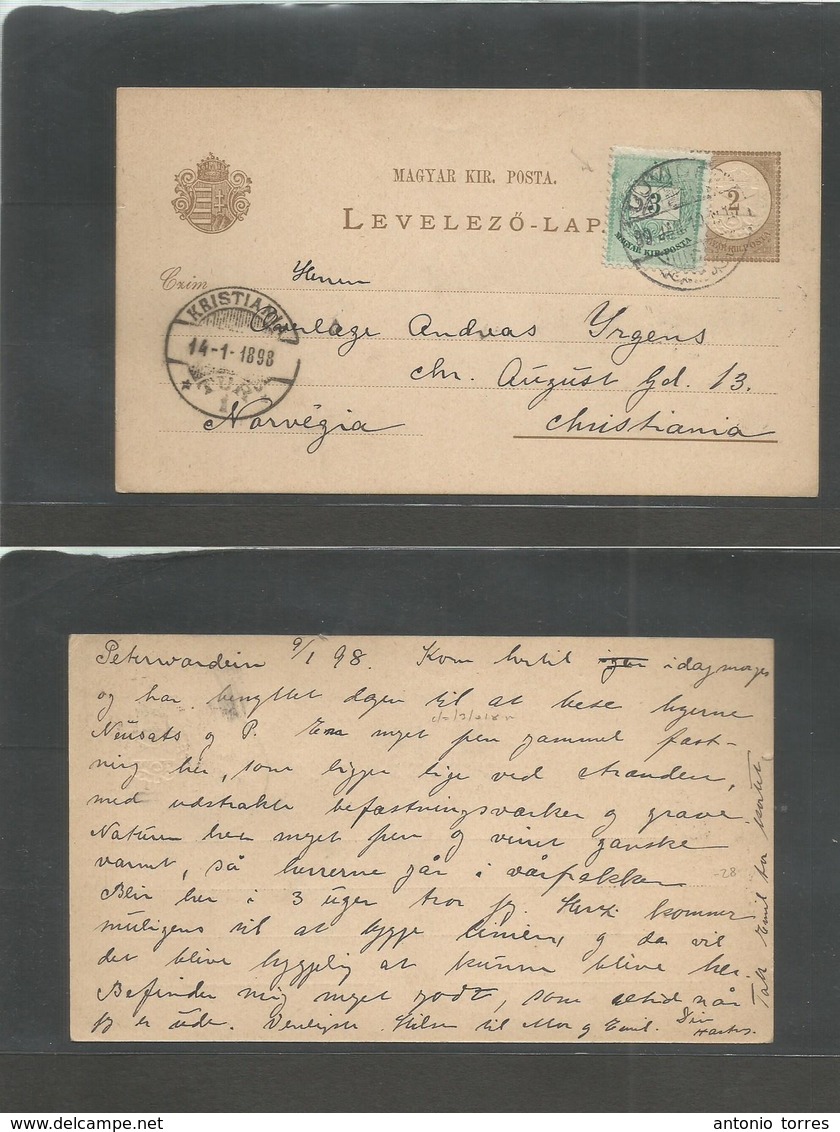 MAGYAR KIR. POSTA.
LEVELEZŐ-LAP
3
MAGYAR KIR. POSTA
2
MAGYAR KIR. POSTA
Czim
Herrn
Andreas Yrgens
Chr. August Gd. 13.
Norvégia
Christiania
KRISTIANIA
14-1-1898
TUR
1
Peterwardein 9/1 98. Kom hertil idag morges
og har benyttet dagen til at bese byerne
Neusats og P. En meget pen gammel fæst-
ning her, som ligger lige ved stranden,
med udstrakte befæstningsværker og grave.
Naturen her meget pen og veiret ganske
varmt, så herrerne går i vårfrakker
Blir her i 3 uger tror jeg. kommer
muligens til at bygge linien, og da vil
det blive hyggelig at kunne blive her.
Befinder mig meget godt, som altid når
jeg er ude. Venligste Hilsen til Mor og Emil. Din
Tak Emil for kortet
-28
antonio torres